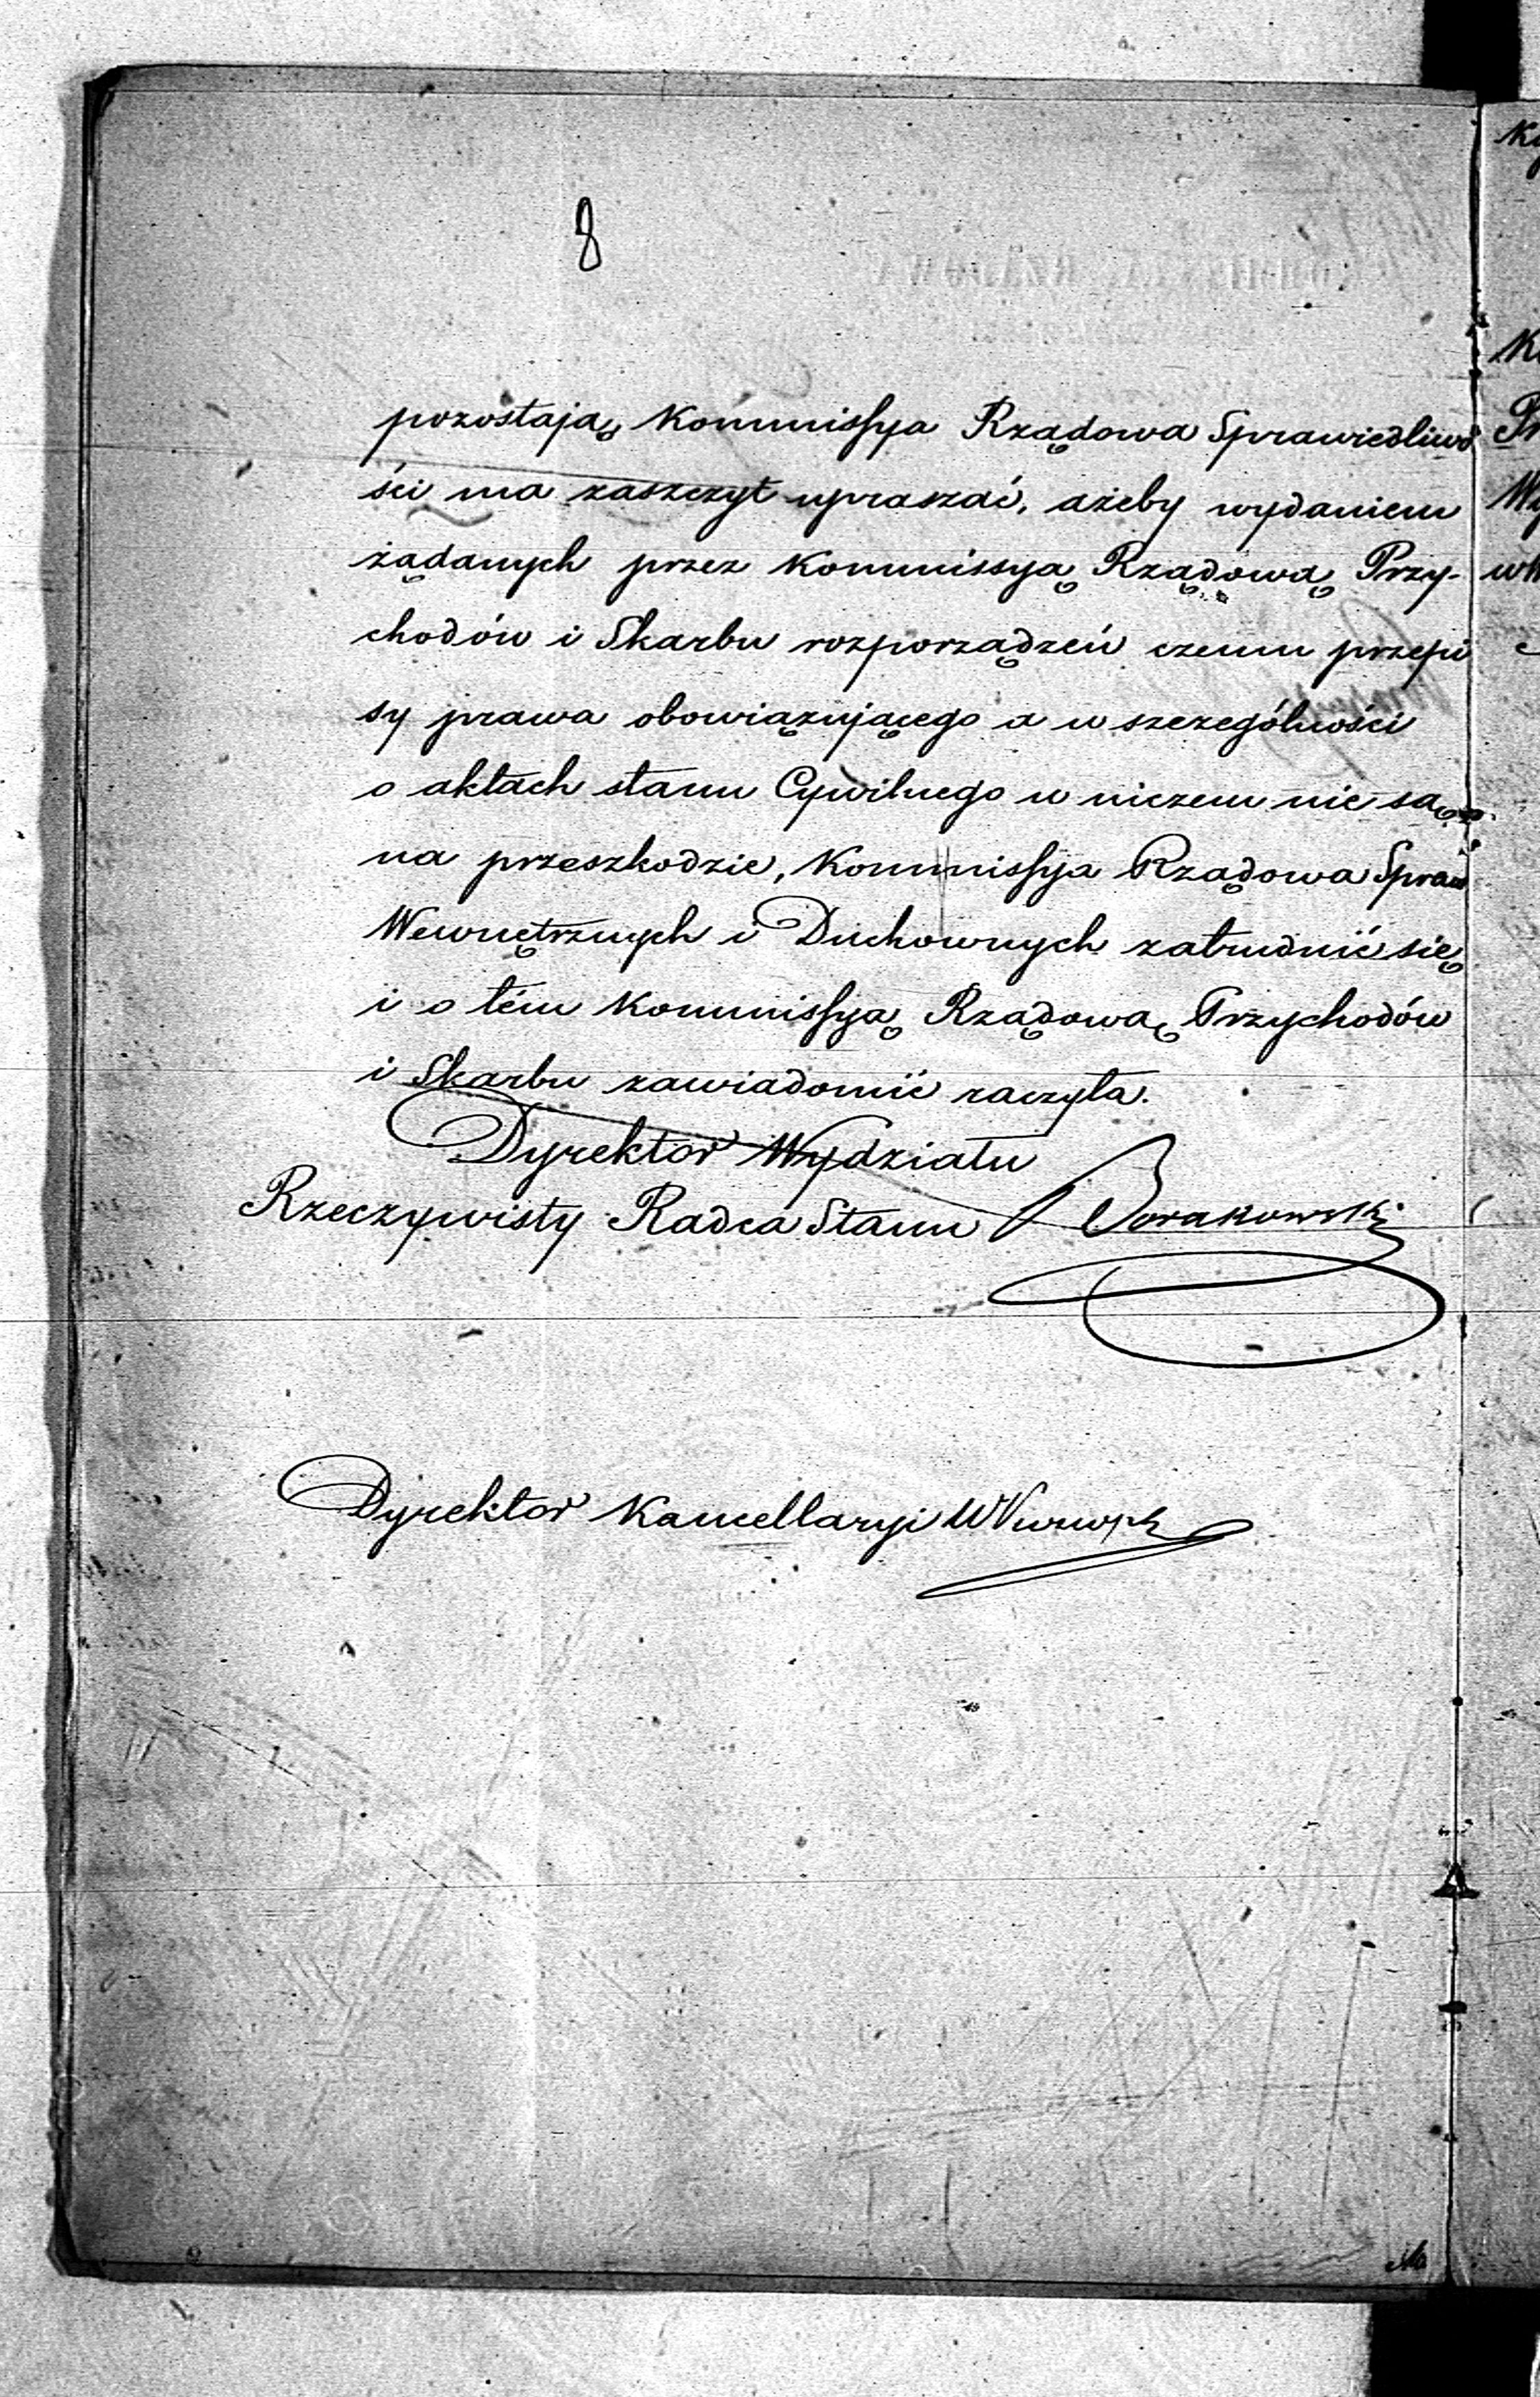 8
pozostają, Kommissya Rządowa Sprawiedliwo
ści ma zaszczyt upraszać, ażeby wydaniem
żądanych przez Kommissyą Rządową Przy-
chodów i Skarbu rozporządzeń czemu przepi
sy prawa obowiązującego a w szczególności
o aktach stanu Cywilnego w niczem nie są
na przeszkodzie, Kommissya Rządowa Spraw
Wewnętrznych i Duchownych zatrudnić się
i o tém Kommissyą Rządową Przychodów
i Skarbu zawiadomić raczyła.
Dyrektor Wydziału
Rzeczywisty Radca Stanu Borakowski
Dyrektor Kancellaryi